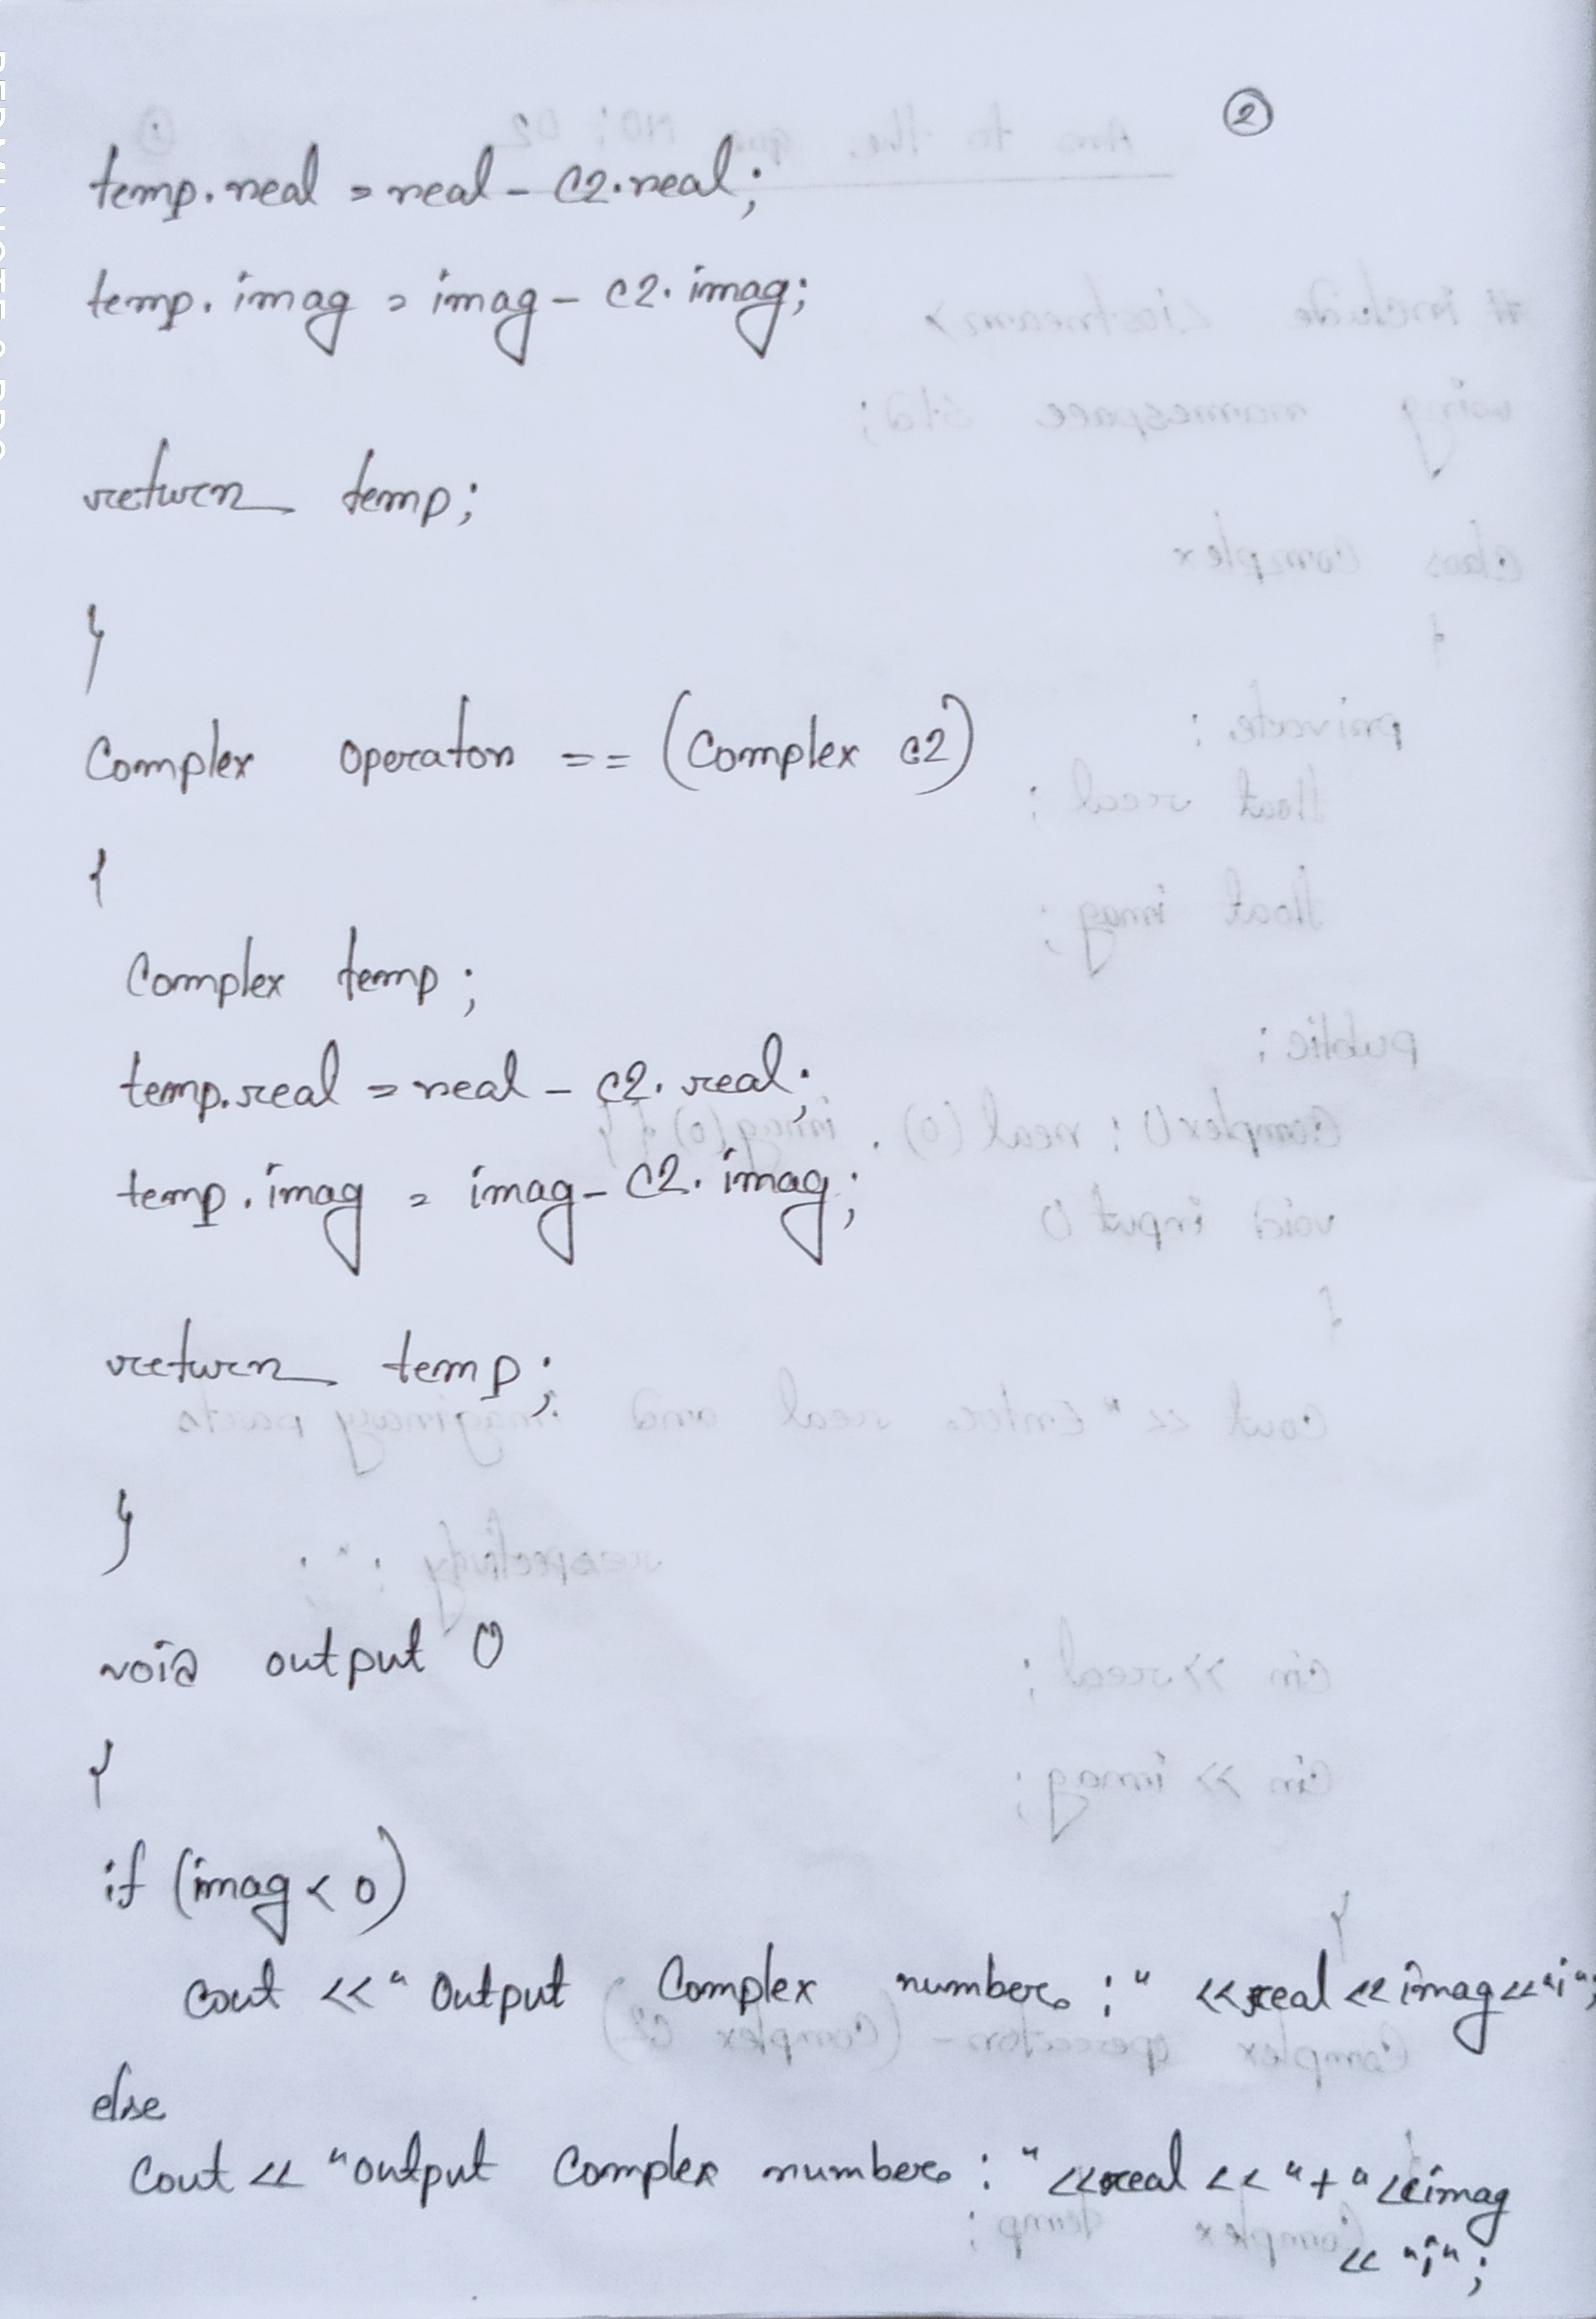 2
temp.real = real - c2.real;
temp.imag = imag - c2.imag;
return temp;
}
Complex operator == (Complex c2)
{
Complex temp;
temp.real = real - c2.real;
temp.imag = imag - c2.imag;
return temp;
}
void output ()
{
if (imag < 0)
cout << "Output Complex number : " << real << imag << "i";
else
cout << "output Complex number : " << real << "+" << imag
<< "i";